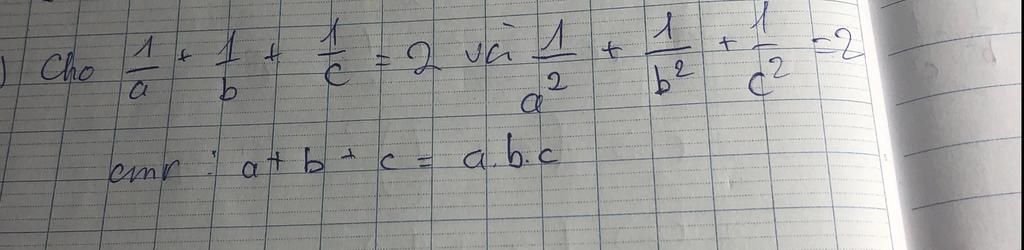 ) Cho 1/a + 1/b + 1/c = 2 và 1/a² + 1/b² + 1/c² = 2
cmr : a + b + c = a.b.c